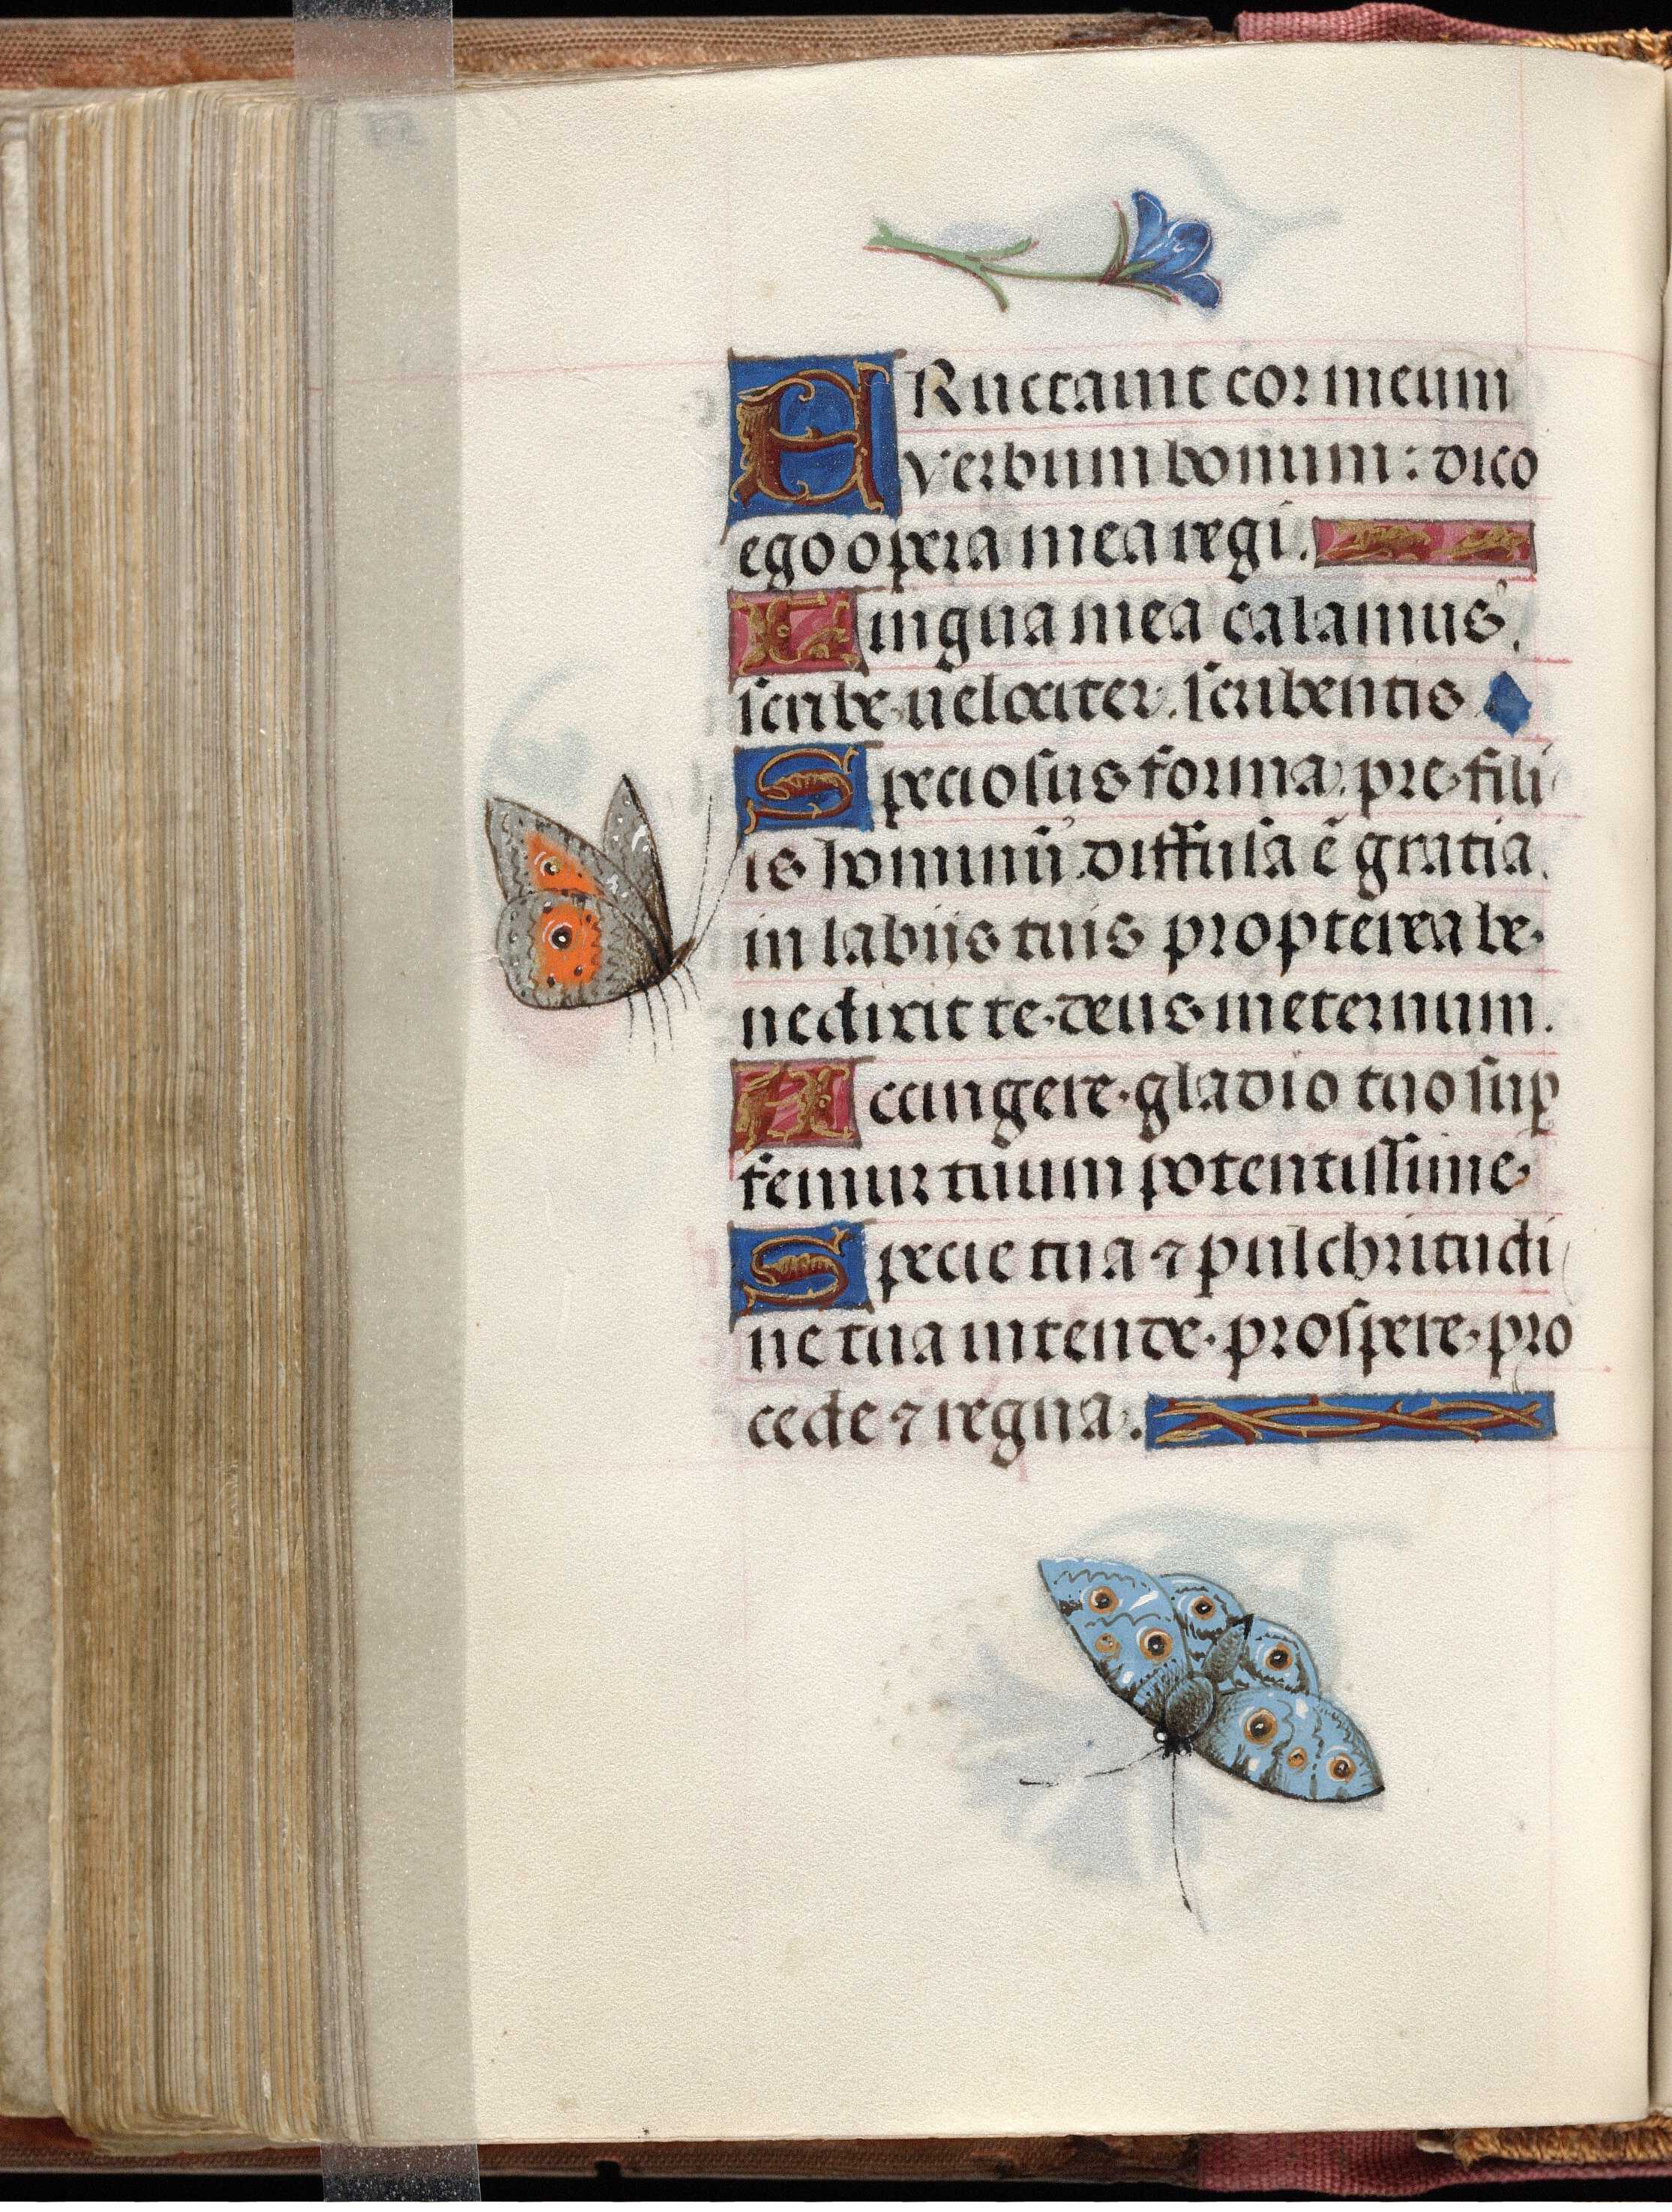 ERuctauit cor meum
verbum bonum: dico
ego opera mea regi.
Lingua mea calamus
scribe uelociter scribentis
Speciosus forma pre fili
is hominū diffusa ē gratia
in labijs tuis propterea be
nedixit te deus ineternum.
Accingere gladio tuo suꝑ
femur tuum potentissime
Specie tua ⁊ pulchritudi
ne tua intende prospere pro
cede ⁊ regna.